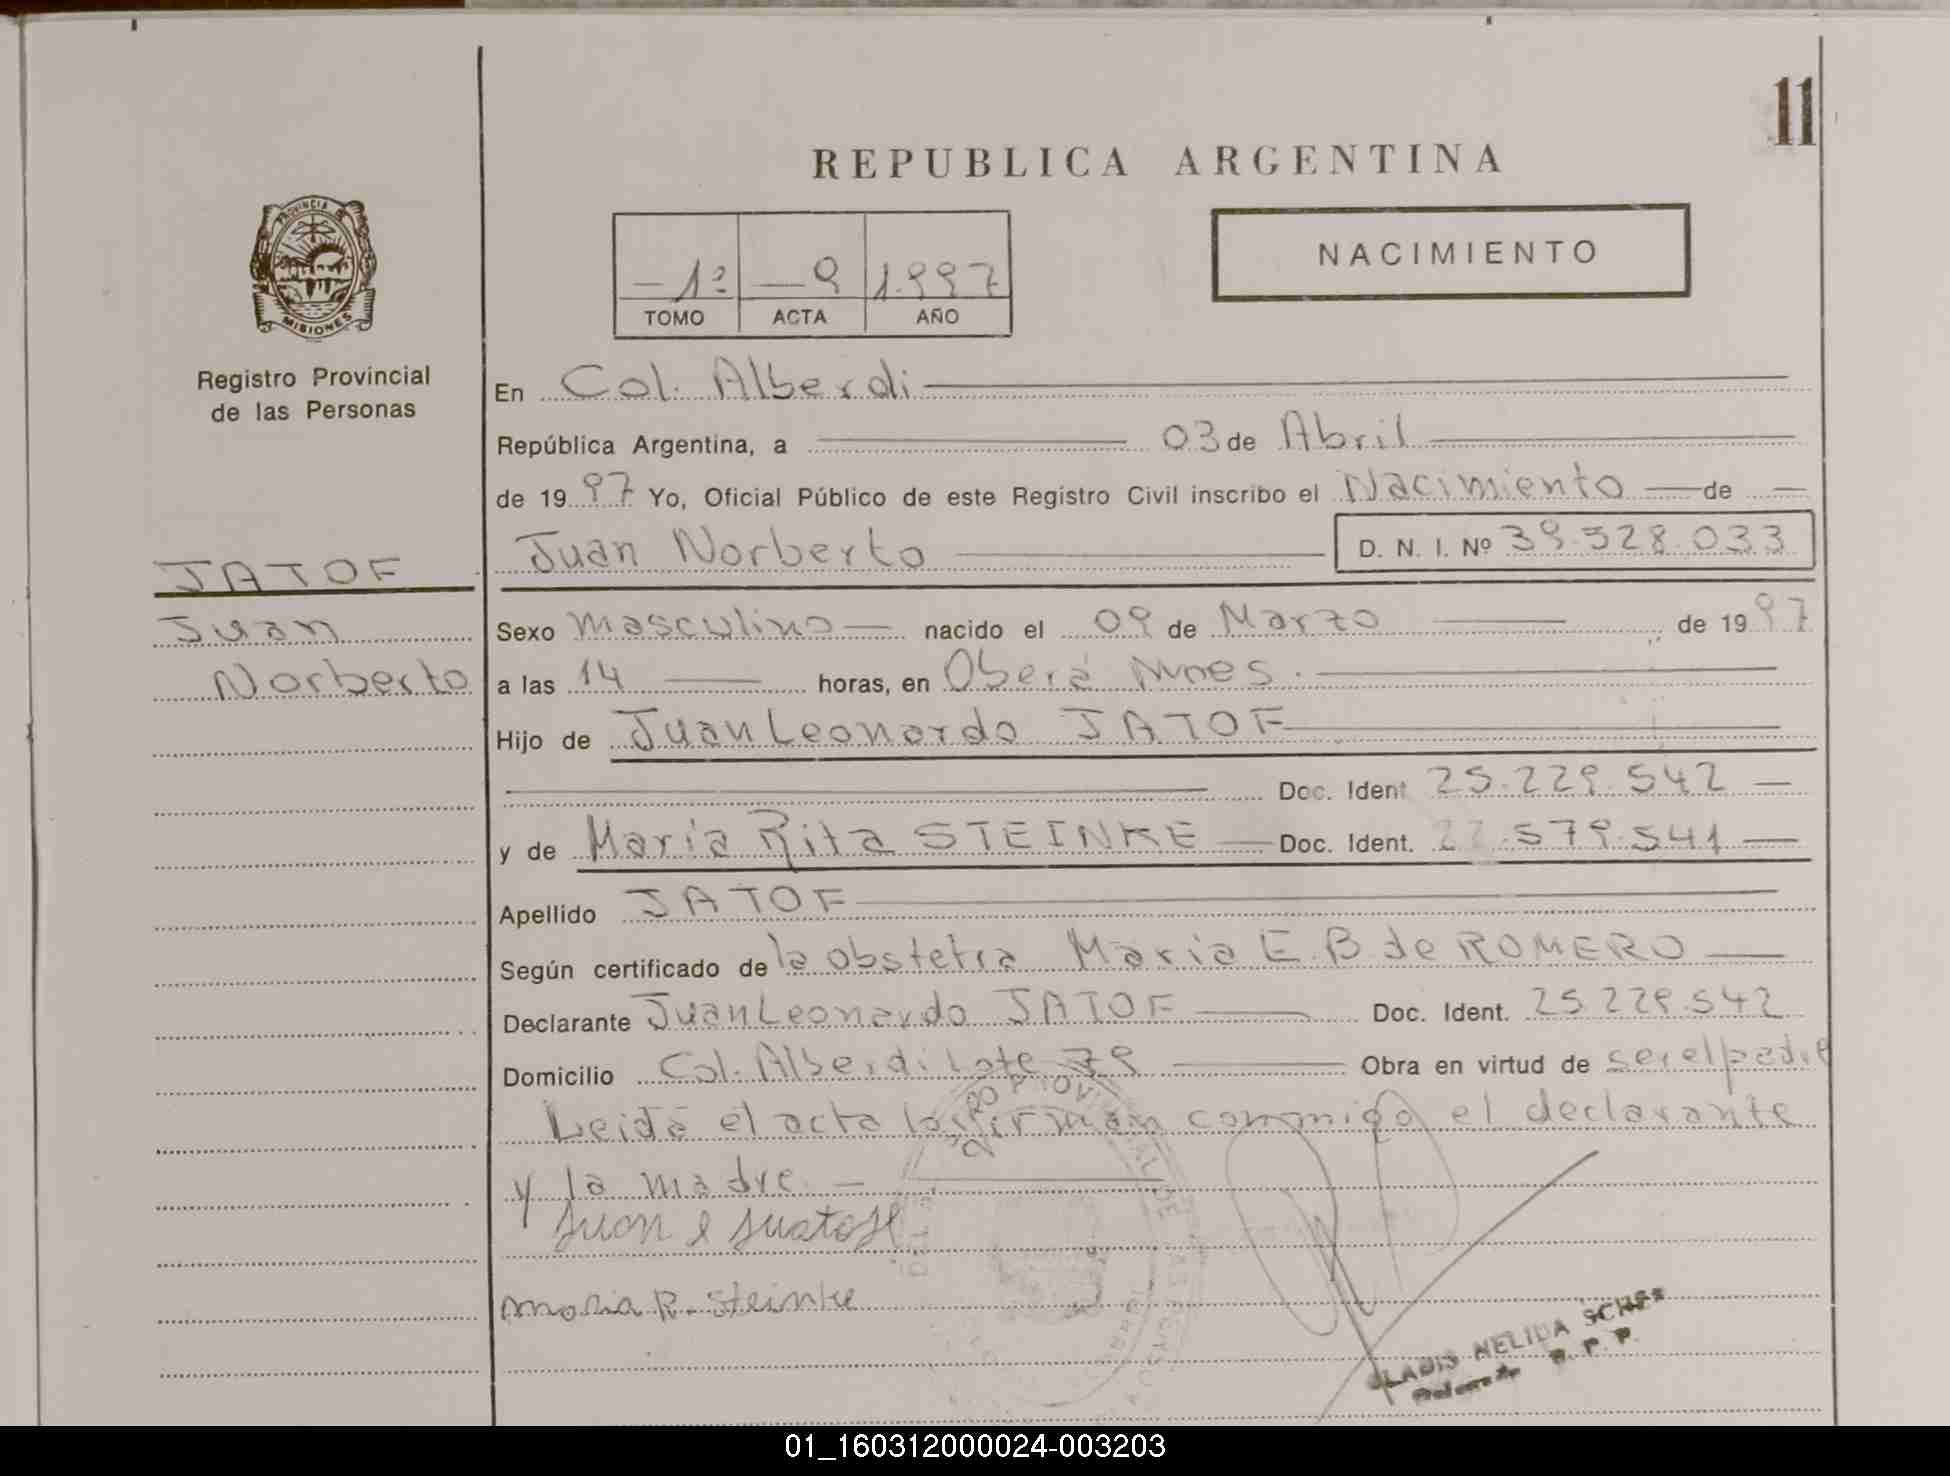 11
REPUBLICA ARGENTINA
PROVINCIA DE
MISIONES
Registro Provincial
de las Personas
NACIMIENTO
- 1º - 9 1.997
TOMO ACTA AÑO
En Col. Alberdi
República Argentina, a 03 de Abril
de 1997 Yo, Oficial Público de este Registro Civil inscribo el Nacimiento de
Juan Norberto D. N. I. Nº 39.528.033
JATOF
Juan
Norberto
Sexo masculino nacido el 09 de Marzo de 1997
a las 14 horas, en Oberá Mnes.
Hijo de Juan Leonardo JATOF
Doc. Ident 25.229.542
y de María Rita STEINKE Doc. Ident. 22.579.541
Apellido JATOF
Según certificado de la obstetra Maria E. B de ROMERO
Declarante Juan Leonardo JATOF Doc. Ident. 25.229.542
Domicilio Col. Alberdi Lote 79 Obra en virtud de ser el padre
Leida el acta la firman conmigo el declarante
y la madre. -
Juan
Maria R. Steinke
NELIDA
R. P. P.
01_160312000024-003203